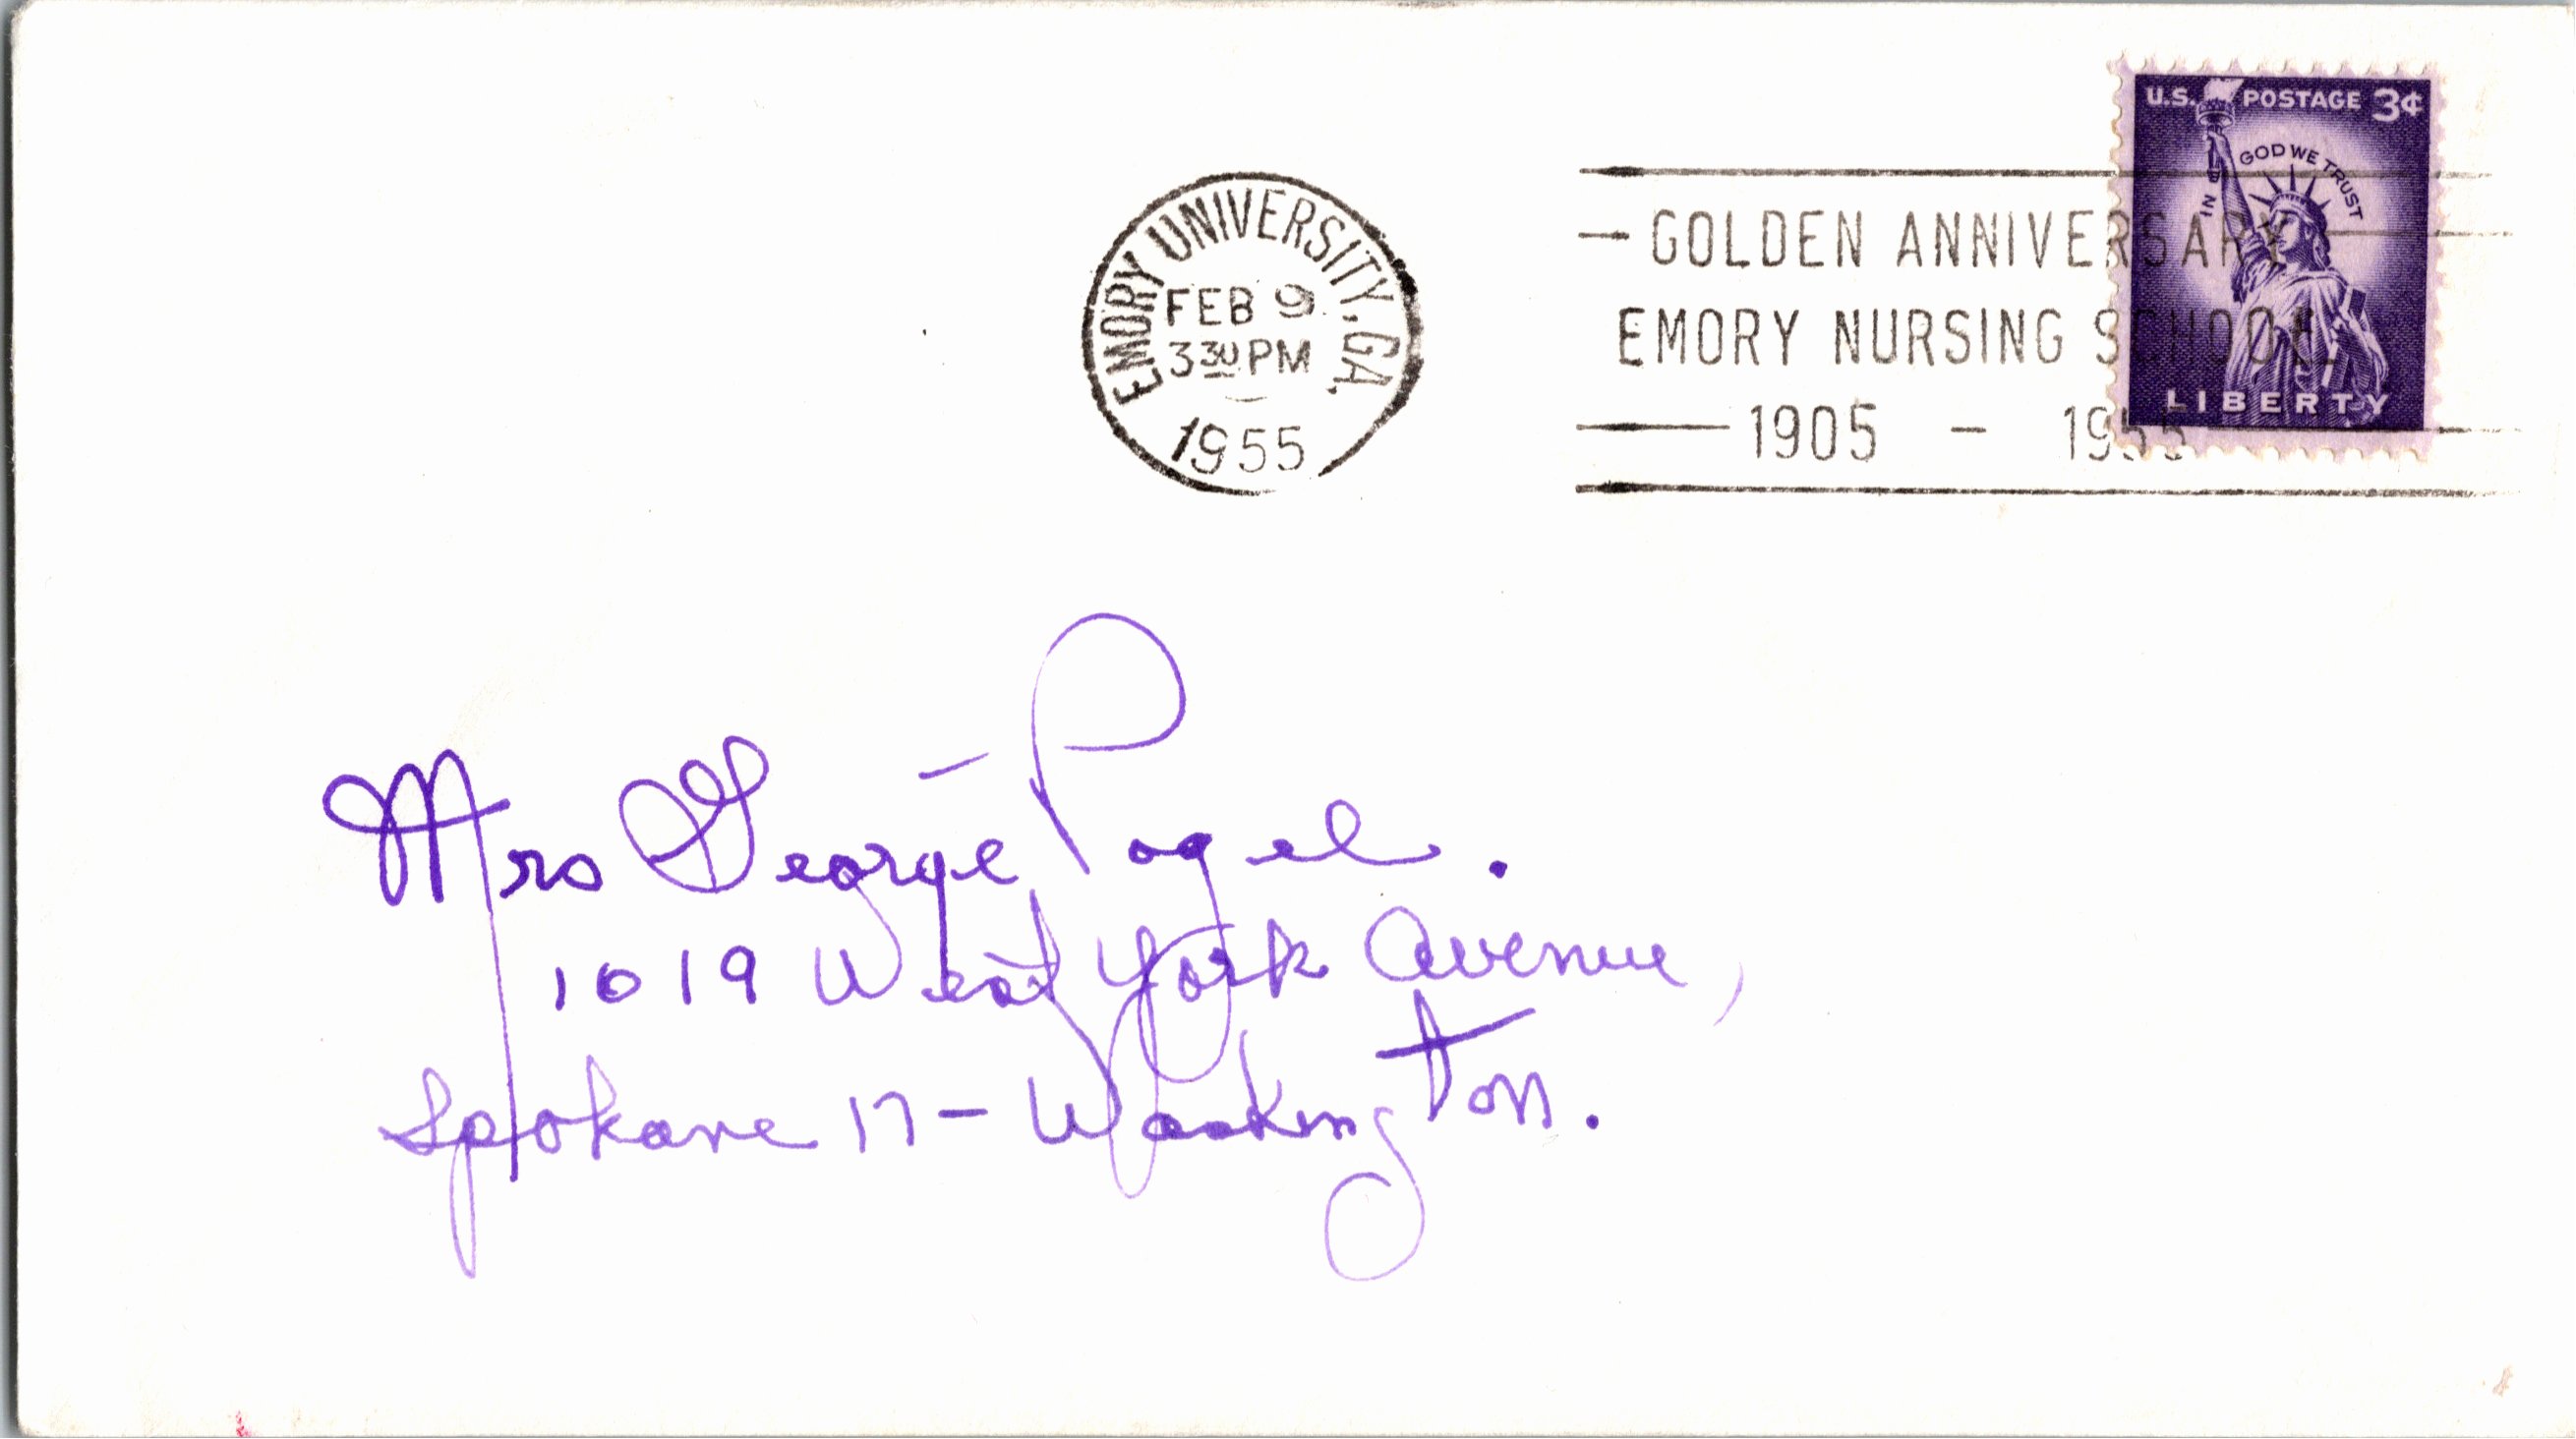 U.S. POSTAGE 3¢
IN GOD WE TRUST
LIBERTY
EMORY UNIVERSITY, GA.
FEB 9
3 30 PM
1955
GOLDEN ANNIVERSARY
EMORY NURSING SCHOOL
1905 - 1955
Mrs George Pogel.
1019 West York Avenue,
Spokane 17 - Washington.